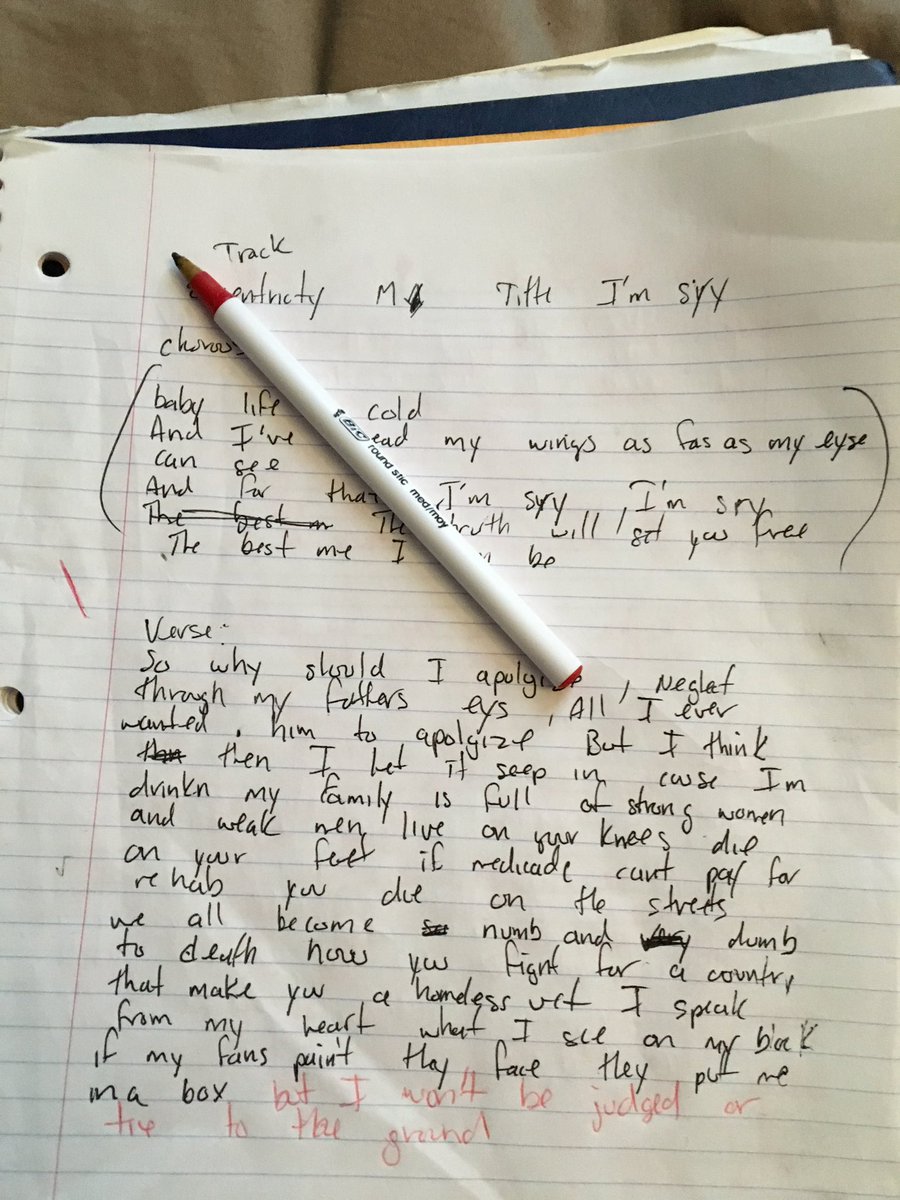 Track
entricty M Title I'm syy
chorous
baby life cold
And I've ead my wings as fas as my eyse
can see
And for that I'm syy, I'm sry
The best m The truth will set you free
The best me I n be
BIC round stic med/moy
Verse:
So why should I apolgize, Neglat
through my fathers eys, All I ever
wanted, him to apolgize But I think
than then I let it seep in cause I'm
drinkn my family is full of strong women
and weak men, live on your knees die
on your feet if medicade cant pay for
rehab you die on the streets
we all become so numb and very dumb
to death how you fight for a country
that make you a homeless vet I speak
from my heart what I see on my block
if my fans paint they face they put me
in a box but I won't be judged or
tie to the ground